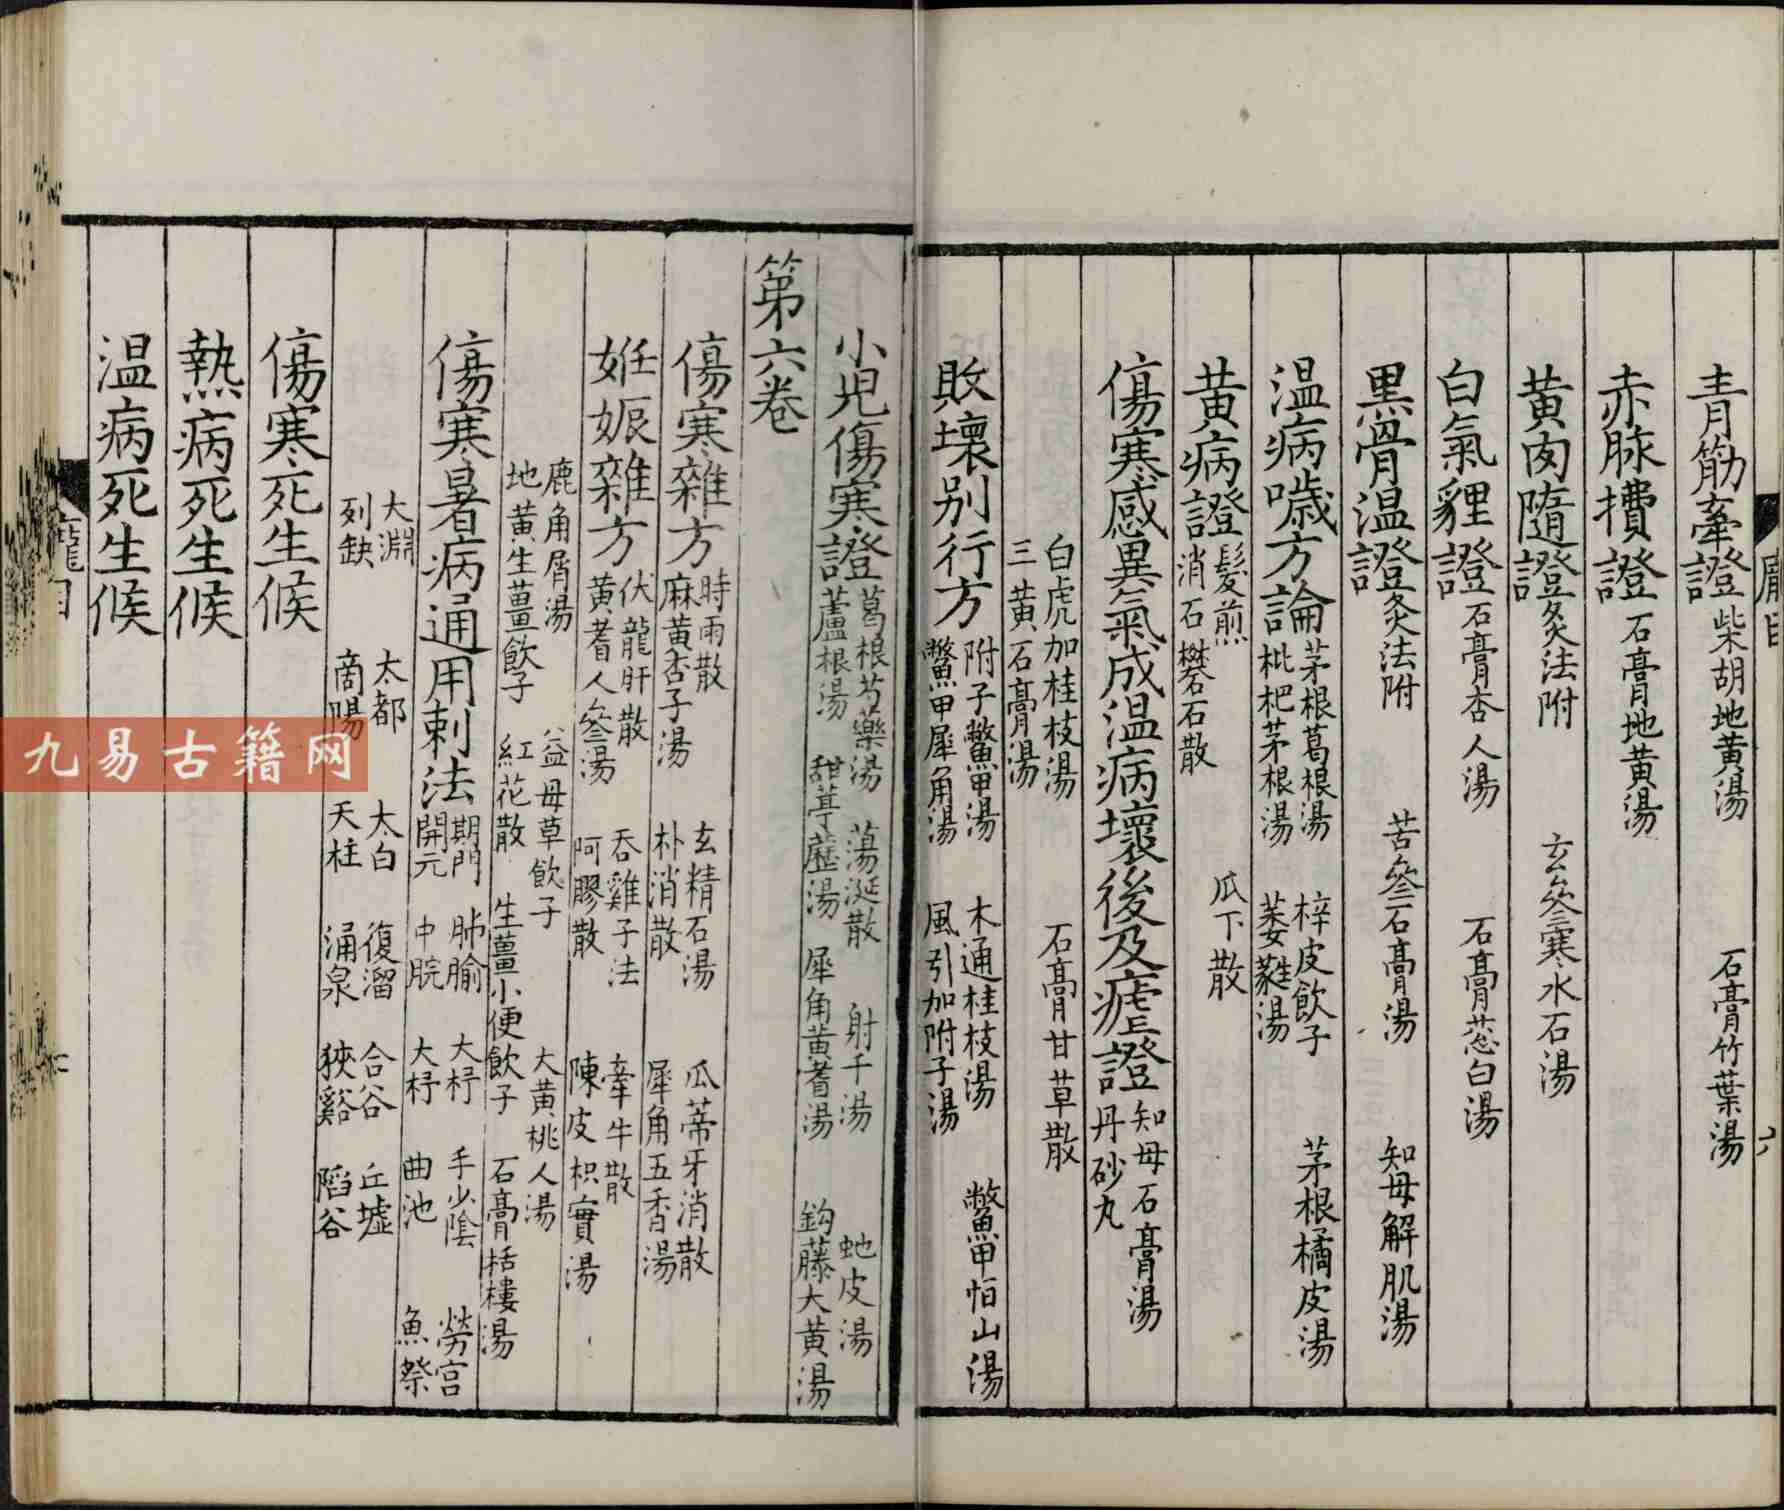 青筋牽證 柴胡地黃湯 石膏竹葉湯
赤脉攢證 石膏地黃湯
黃肉隨證 灸法附 玄參寒水石湯
白氣貍證 石膏杏人湯 石膏葱白湯
黑骨溫證 灸法附 苦參石膏湯 知母解肌湯
温病噦方論 茅根葛根湯 枇杷茅根湯 梓皮飲子 萎蕤湯 茅根橘皮湯
黃病證 髮煎 消石礬石散 瓜下散
傷寒感異氣成温病壞後及瘧證 知母石膏湯 丹砂丸
白虎加桂枝湯 三黃石膏湯 石膏甘草散
敗壞别行方 附子鱉甲湯 鱉甲犀角湯 木通桂枝湯 風引加附子湯 鱉甲恒山湯
龐目 六
小児傷寒證 葛根芍藥湯 蘆根湯 蕩涎散 甜葶藶湯 射干湯 犀角黃蓍湯 虵皮湯 鈎藤大黃湯
第六卷
傷寒雜方 時雨散 麻黃杏子湯 玄精石湯 朴消散 瓜蒂牙消散 犀角五香湯
妊娠雜方 伏龍肝散 黃耆人參湯 吞雞子法 阿膠散 牽牛散 陳皮枳實湯
鹿角屑湯 地黃生薑飲子 益母草飲子 紅花散 生薑小便飲子 大黃桃人湯 石膏栝樓湯
傷寒暑病通用剌法 期門 開元 肺腧 中脘 大杼 大杼 手少陰 曲池 勞宮 魚祭
大淵 列缺 太都 商陽 太白 天柱 復溜 涌泉 合谷 狹谿 丘墟 陷谷
傷寒死生候
熱病死生候
温病死生候
龐目
九易古籍网